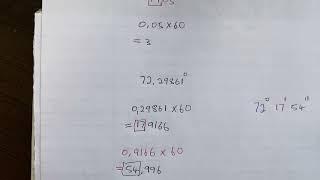 0,05 x 60
= 3
72,29861°
0,29861 x 60
= 17,9166
72° 17' 54"
0,9166 x 60
= 54,996